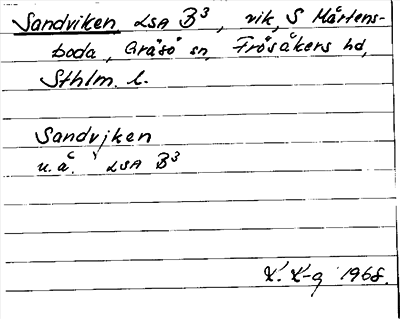 Sandviken LSA B³, vik, S Mårtens-
boda, Gräsö sn, Frösåkers hd,
Sthlm. l.
Sandvjken
u.å. LSA B³
1968.